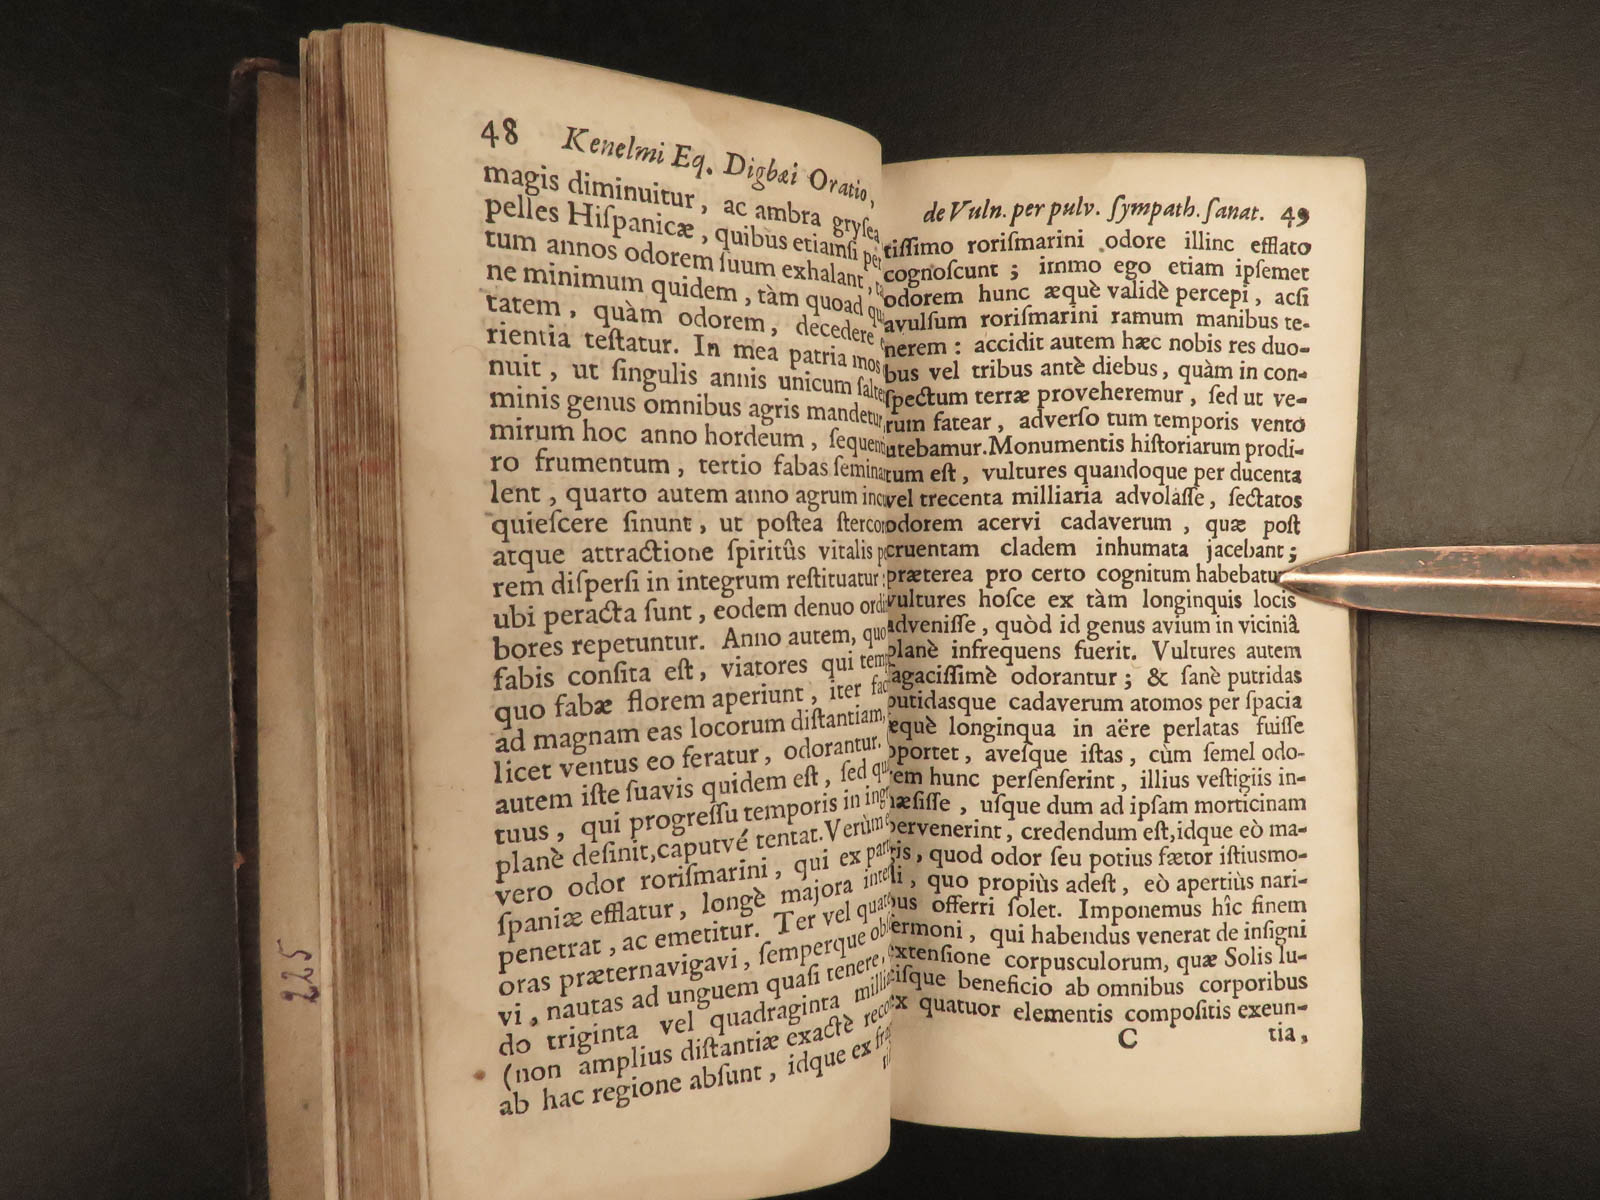 48 Kenelmi Eq. Digbæi Oratio,
magis diminuitur, ac ambra gryſea
pelles Hiſpanicæ, quibus etiamſi per
tum annos odorem ſuum exhalant,
ne minimum quidem, tàm quoad
tatem, quàm odorem, decedere
rientia teſtatur. In mea patria mos
nuit, ut ſingulis annis unicum ſalte
minis genus omnibus agris mandetur,
mirum hoc anno hordeum, ſequenti
ro frumentum, tertio fabas ſemina
lent, quarto autem anno agrum incu
quieſcere ſinunt, ut poſtea ſtercor
atque attractione ſpiritûs vitalis
rem diſperſi in integrum reſtituatur:
ubi peracta ſunt, eodem denuo ordi
bores repetuntur. Anno autem, quo
fabis conſita eſt, viatores qui tem
quo fabæ florem aperiunt, iter fac
ad magnam eas locorum diſtantiam,
licet ventus eo feratur, odorantur.
autem iſte ſuavis quidem eſt, ſed
tuus, qui progreſſu temporis in ing
planè deſinit, caputvé tentat. Verùm
vero odor roriſmarini, qui ex part
ſpaniæ efflatur, longè majora inte
penetrat, ac emetitur. Ter vel quat
oras præternavigavi, ſemperque ob
vi, nautas ad unguem quaſi tenere,
do triginta vel quadraginta milli
(non amplius diſtantiæ exactè reco
ab hac regione abſunt, idque ex fra
225
de Vuln. per pulv. ſympath. ſanat. 49
tiſſimo roriſmarini odore illinc efflato
cognoſcunt; immo ego etiam ipſemet
odorem hunc æquè validè percepi, acſi
avulſum roriſmarini ramum manibus te-
nerem: accidit autem hæc nobis res duo-
bus vel tribus antè diebus, quàm in con-
ſpectum terræ proveheremur, ſed ut ve-
rum fatear, adverſo tum temporis vento
utebamur. Monumentis hiſtoriarum prodi-
tum eſt, vultures quandoque per ducenta
vel trecenta milliaria advolàſſe, ſectatos
odorem acervi cadaverum, quæ poſt
cruentam cladem inhumata jacebant;
præterea pro certo cognitum habebatur
vultures hoſce ex tàm longinquis locis
adveniſſe, quòd id genus avium in viciniâ
planè infrequens fuerit. Vultures autem
ſagaciſſimè odorantur; & ſanè putridas
putidasque cadaverum atomos per ſpacia
æquè longinqua in aëre perlatas fuiſſe
oportet, aveſque iſtas, cùm ſemel odo-
rem hunc perſenſerint, illius veſtigiis in-
hæſiſſe, uſque dum ad ipſam morticinam
pervenerint, credendum eſt, idque eò ma-
gis, quod odor ſeu potius fœtor iſtiusmo-
di, quo propiùs adeſt, eò apertiùs nari-
bus offerri ſolet. Imponemus hîc finem
ſermoni, qui habendus venerat de inſigni
extenſione corpusculorum, quæ Solis lu-
ciſque beneficio ab omnibus corporibus
ex quatuor elementis compoſitis exeun-
C tia,